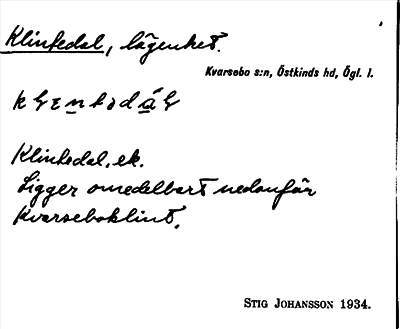 Klintedal, lägenhet.
Kvarsebo s:n, Östkinds hd, Ögl. l.
Klintedal, ek.
Ligger omedelbart nedanför
Kvarseboklint.
STIG JOHANSSON 1934.